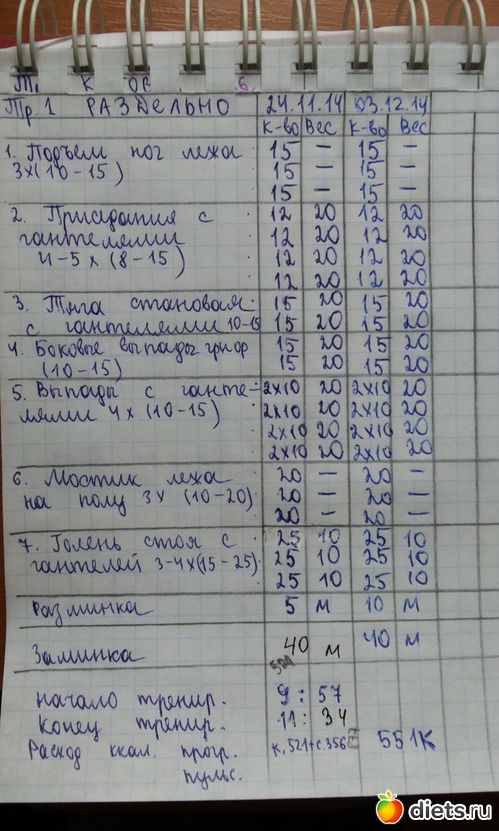 Тр. 1 РАЗДЕЛЬНО 24.11.14 03.12.14
К-во Вес К-во Вес
1. Подъем ног лежа 15 – 15 –
3x(10-15) 15 – 15 –
15 – 15 –
2. Приседания с 12 20 12 20
гантелями 12 20 12 20
4-5 x (8-15) 12 20 12 20
12 20 12 20
3. Тяга становая 15 20 15 20
с гантелями 10-15 15 20 15 20
4. Боковые выпады гриф 15 20 15 20
(10-15) 15 20 15 20
5. Выпады с ганте- 2x10 20 2x10 20
лями 4x(10-15) 2x10 20 2x10 20
2x10 20 2x10 20
2x10 20 2x10 20
6. Мостик лежа 20 – 20 –
на полу 3x (10-20) 20 – 20 –
20 – 20 –
7. Голень стоя с 25 10 25 10
гантелей 3-4x(15-25) 25 10 25 10
25 10 25 10
Разминка 5 м 10 м
Заминка 40 м 40 м
начало тренир. 9:57
конец тренир. 11:34
Расход ккал. прогр. К.521+С.356 551К
пульс.
diets.ru